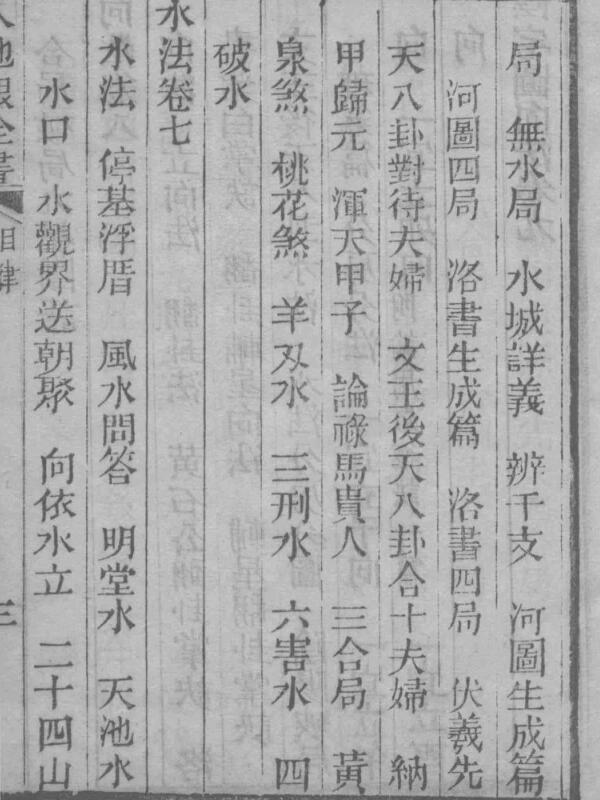 局　無水局　水城詳義　辨干支　河圖生成篇
河圖四局　洛書生成篇　洛書四局　伏羲先
天八卦對待夫婦　文王後天八卦合十夫婦　納
甲歸元　渾天甲子　論祿馬貴人　三合局　黃
泉煞　桃花煞　羊刄水　三刑水　六害水　四
破水
水法卷七
水法　停基浮厝　風水問答　明堂水　天池水
水口　水觀界送朝聚　向依水立　二十四山
目錄　三